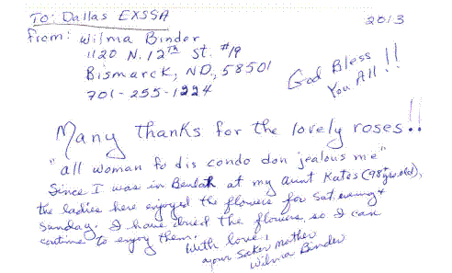 To: Dallas EXSSA
2013
From: Wilma Binder
1120 N. 12th St. #19
Bismarck, ND, 58501
701-255-1224
God Bless
You All!!
Many thanks for the lovely roses!!
"all woman fo dis condo don jealous me"
Since I was in Beulah at my aunt Kates (98 yr old),
the ladies here enjoyed the flowers for Sat. evening +
Sunday. I have dried the flowers, so I can
continue to enjoy them.
With love,
your Soker mother
Wilma Binder